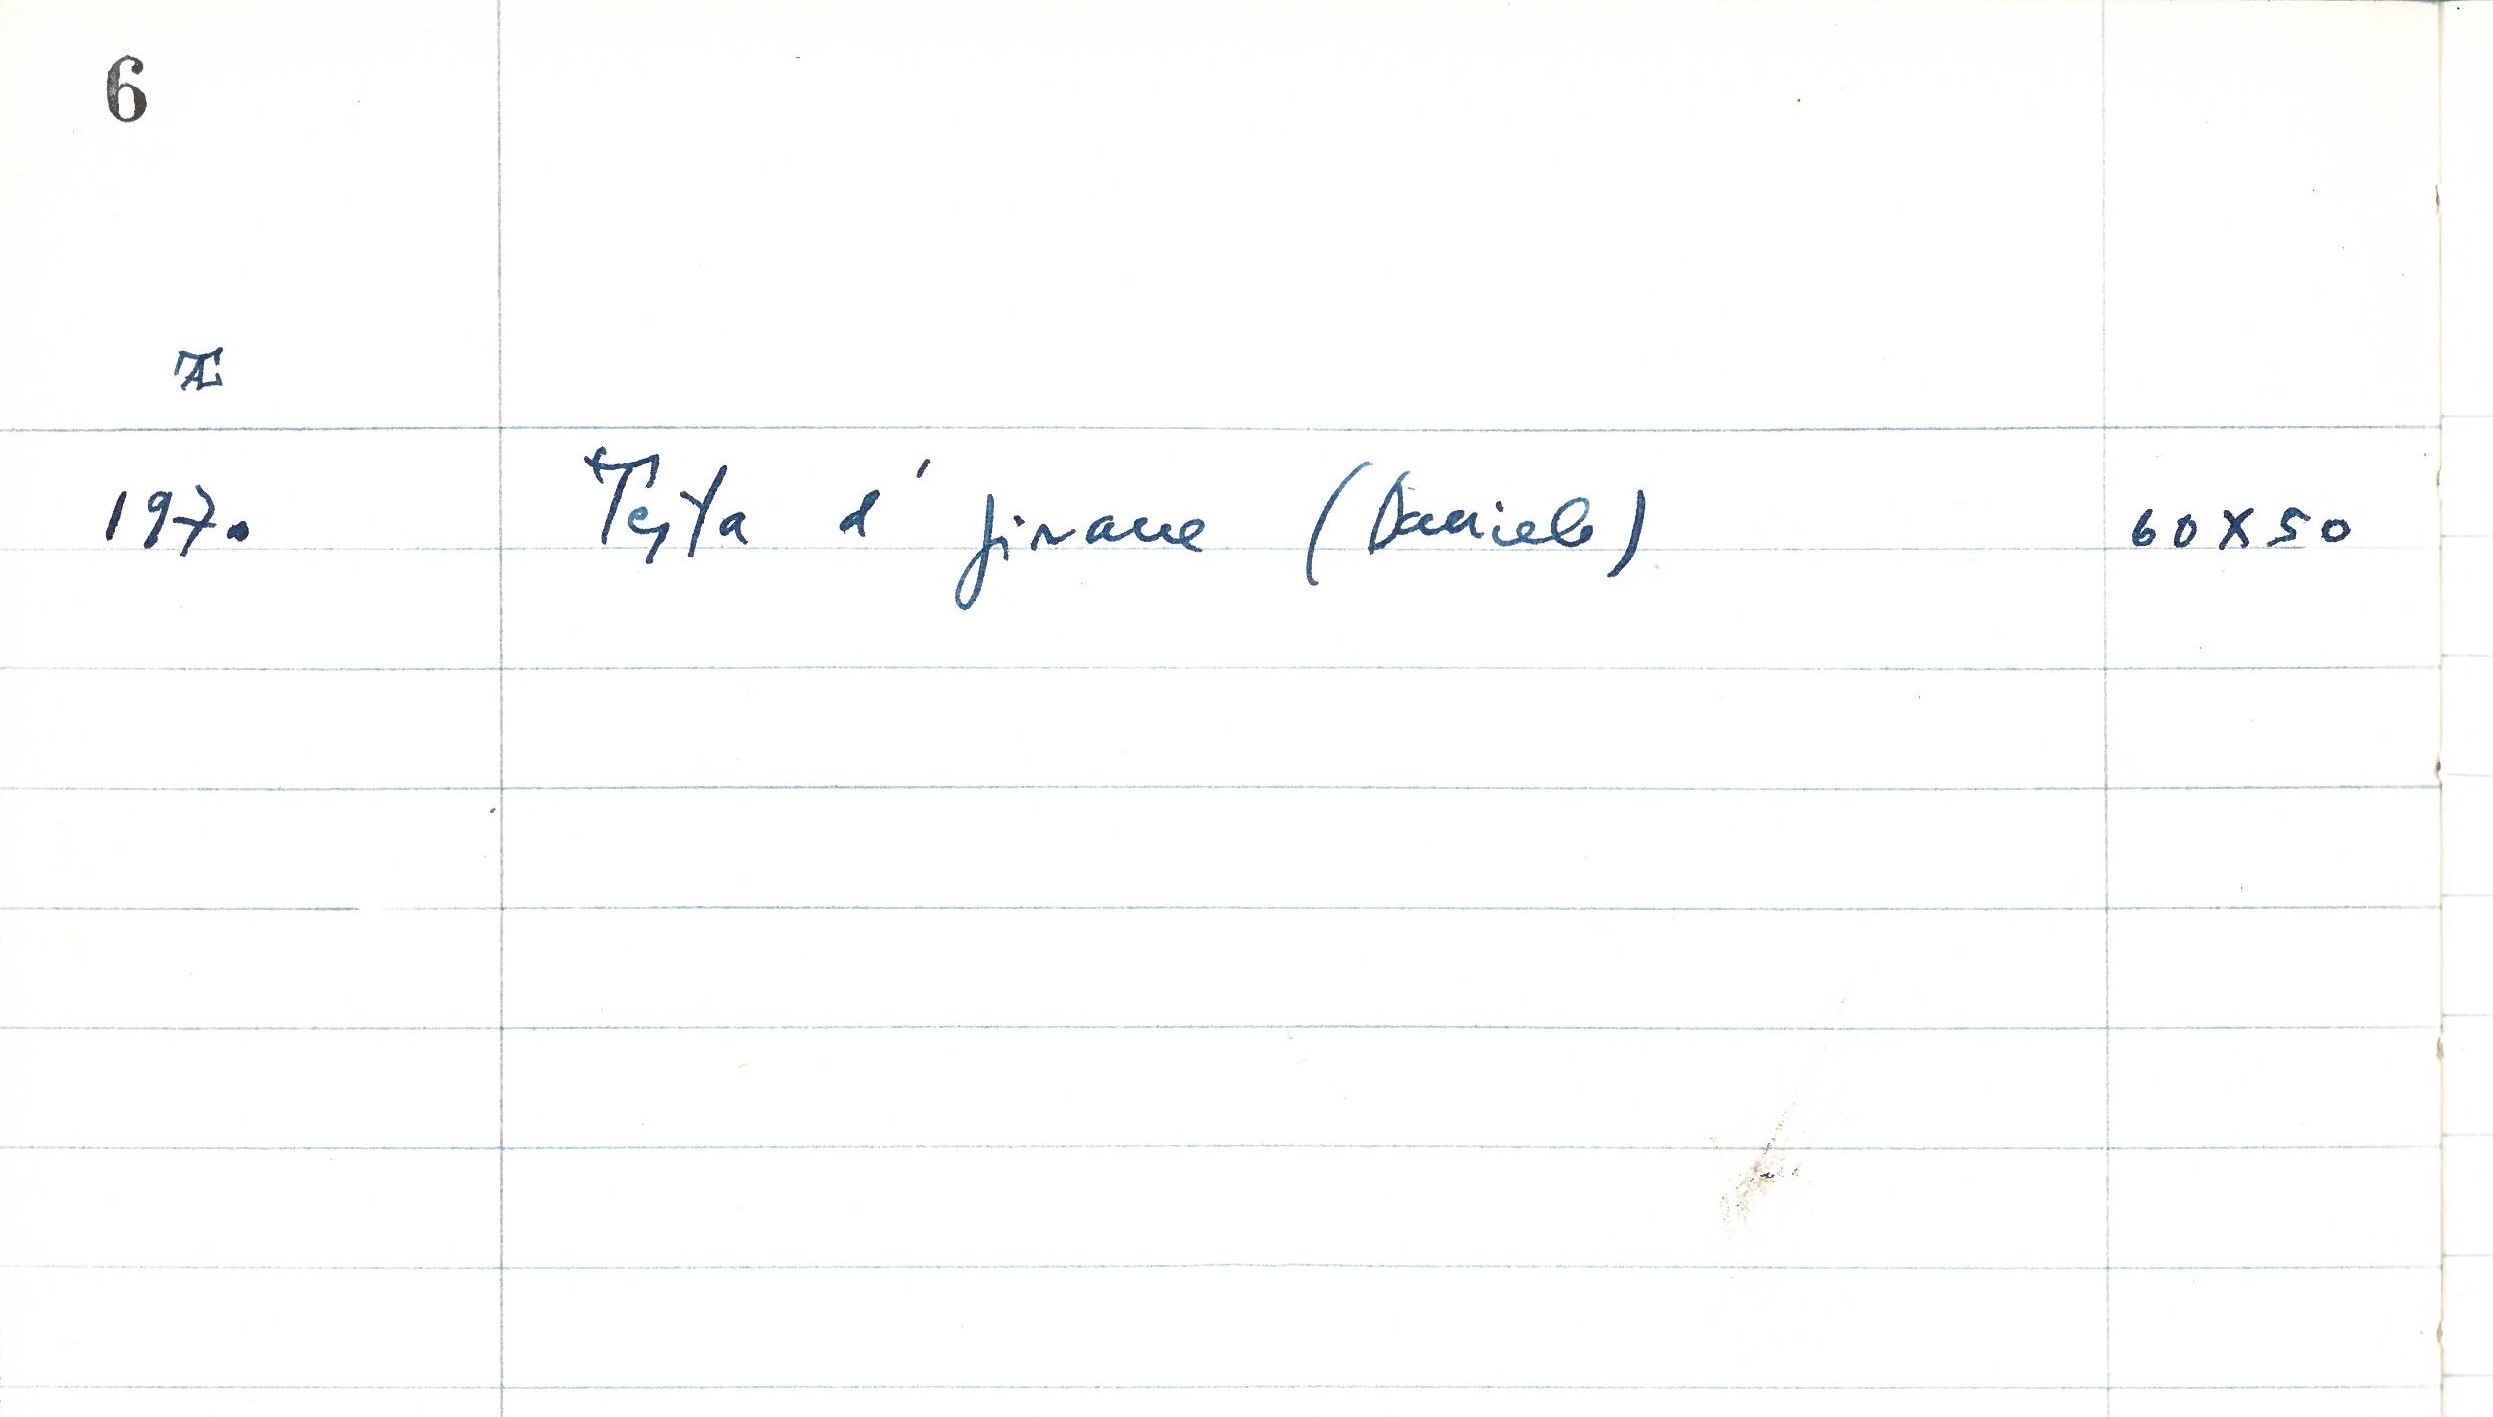 6
1970
Testa di giovane (Daniele)
60X50